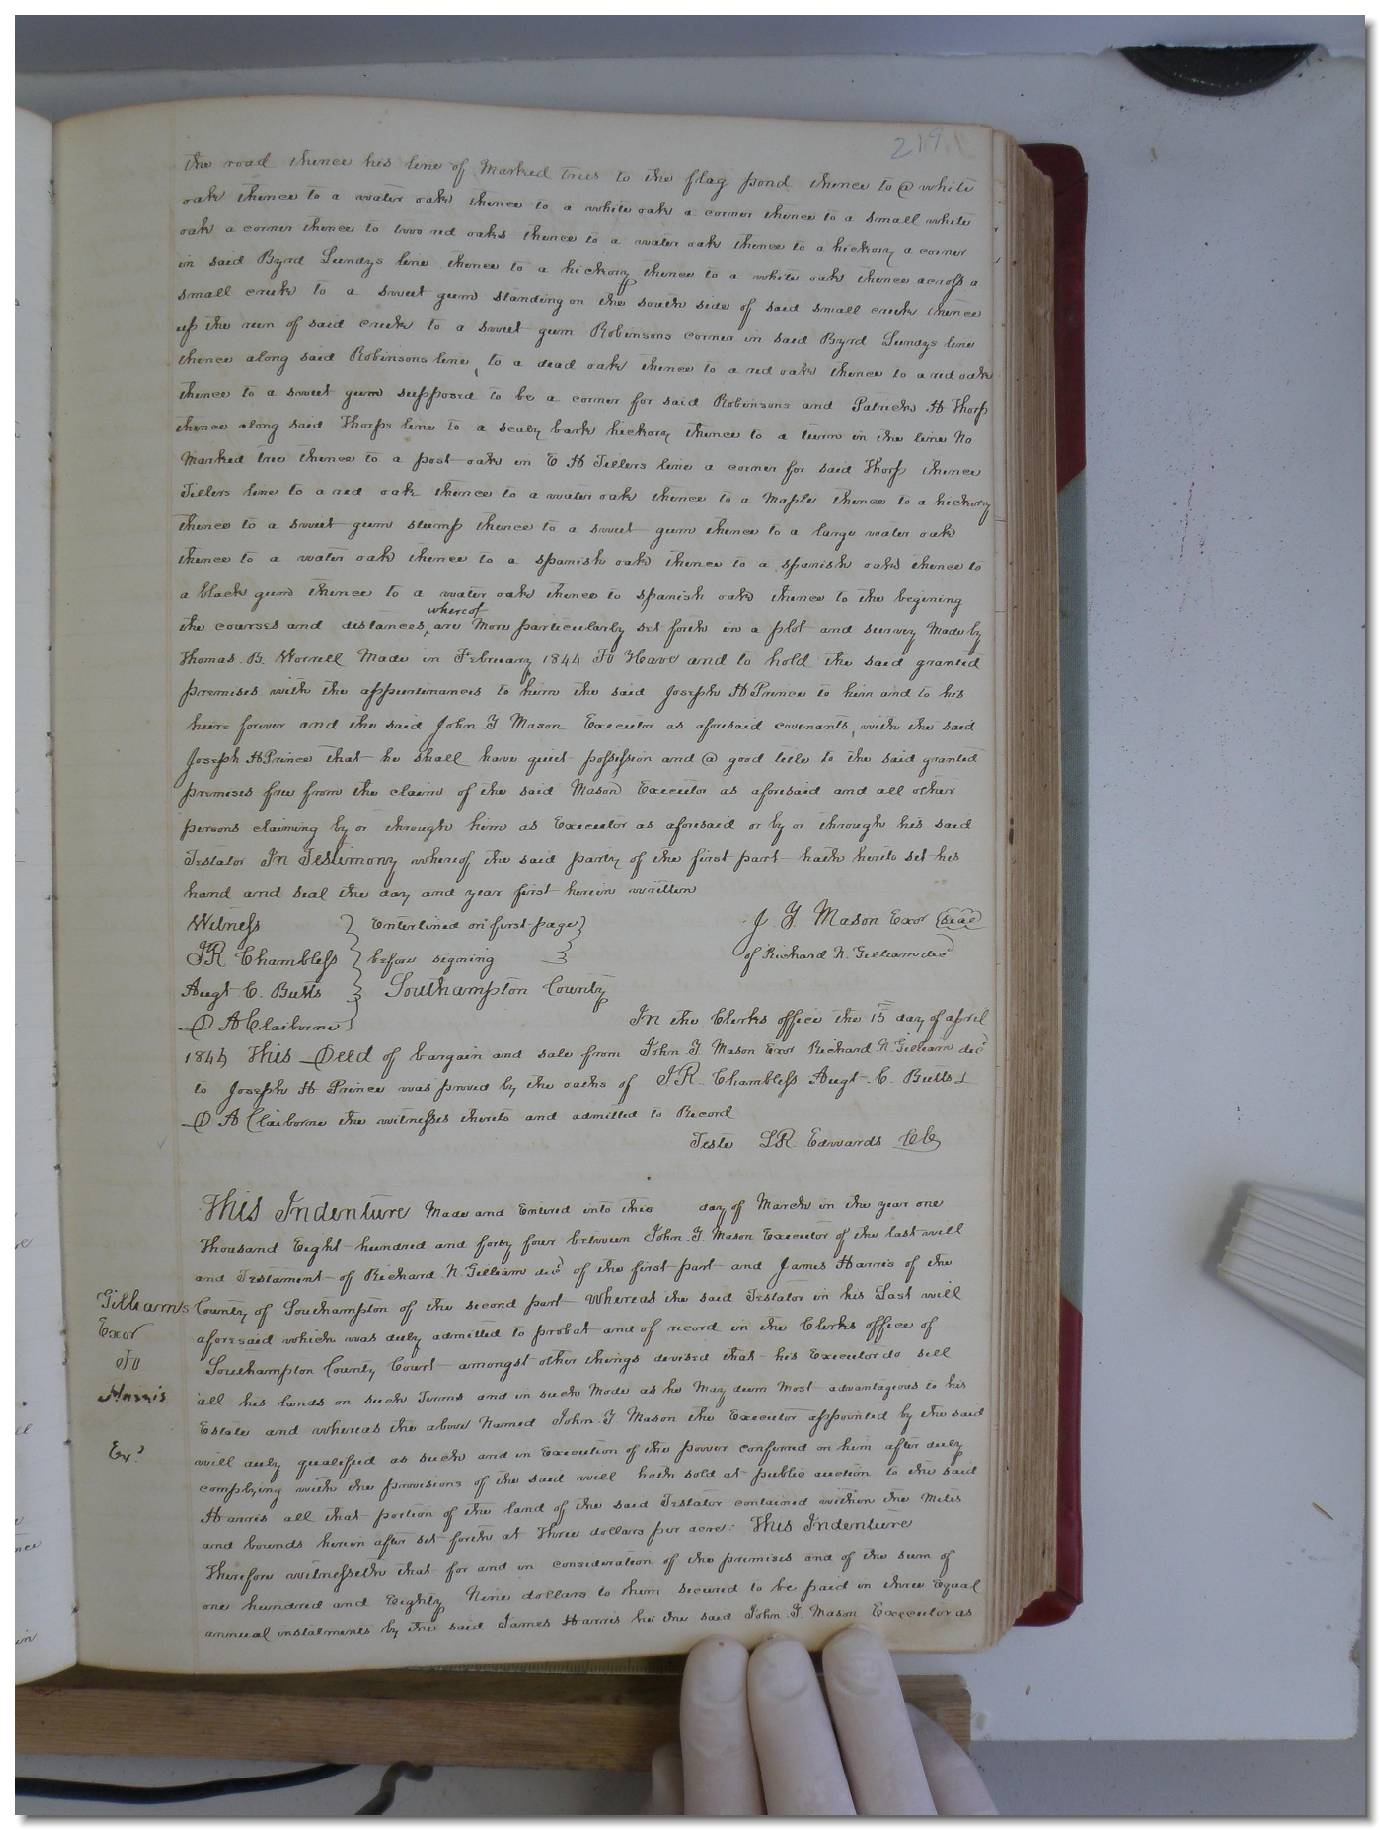 219
the road thence his line of Marked trees to the flag pond thence to @ white
oak thence to a water oak thence to a white oak a corner thence to a small white
oak a corner thence to two red oaks thence to a water oak thence to a hickory a corner
in said Byrd Lundys line thence to a hickory thence to a white oak thence across a
small creek to a sweet gum standing on the south side of said small creek thence
up the run of said creek to a sweet gum Robinsons corner in said Byrd Lundys line
thence along said Robinsons line, to a dead oak thence to a red oak thence to a red oak
thence to a sweet gum supposed to be a corner for said Robinsons and Patrick H Thorp
thence along said Thorps line to a scaly bark hickory thence to a turn in the line No
Marked tree thence to a post oak in E H Tillers line a corner for said Thorp thence
Tillers line to a red oak thence to a water oak thence to a Maple thence to a hickory
thence to a sweet gum stump thence to a sweet gum thence to a large water oak
thence to a water oak thence to a spanish oak thence to a spanish oak thence to
a black gum thence to a water oak thence to spanish oak thence to the begining
whereof
the courses and distances, are More particularly set forth in a plot and survey Made by
Thomas B. Worrell Made in February 1844 To Have and to hold the said granted
premises with the appurtenances to him the said Joseph H Prince to him and to his
heirs forever and the said John Y Mason Executor as aforesaid covenants, with the said
Joseph H Prince that he shall have quiet possession and @ good title to the said granted
premises free from the claim of the said Mason Executor as aforesaid and all other
persons claiming by or through him as Executor as aforesaid or by or through his said
Testator In Testimony whereof the said party of the first part hath hereto set his
hand and seal the day and year first herein written
Witness } Enterlined on first page } J Y. Mason Exor seal
JR Chambless } before signing } of Richard N. Gilliam decd
Augt C. Butts } Southampton County
D A Claiborne } In the Clerks office the 15 day of April
1844 This Deed of bargain and sale from John Y Mason Exor Richard N. Gilliam decd
to Joseph H Prince was proved by the oaths of JR Chambless Augt C. Butts &
D A Claiborne the witnesses thereto and admitted to Record
Teste LR Edwards CC
This Indenture Made and Entered into this day of March in the year one
Thousand Eight hundred and forty four between John Y. Mason Executor of the last will
and Testament of Richard N. Gilliam decd of the first part and James Harris of the
Gilliams County of Southampton of the second part Whereas the said Testator in his Last will
Exor aforesaid which was duly admitted to probat and of record in the Clerks office of
To Southampton County Court amongst other things devised that his Executor do sell
Harris all his lands on such Turms and in such Mode as he May deem Most advantageous to his
Estate and whereas the above Named John Y. Mason the Executor appointed by the said
Exd will duly qualified as such and in Execution of the power conferred on him after duly
complying with the provisions of the said will hath sold at public auction to the said
Harris all that portion of the land of the said Testator contained within the Metes
and bounds herein after set forth at Three dollars per acre: This Indenture
Therefore witnesseth that for and in consideration of the premises and of the sum of
one hundred and Eighty Nine dollars to him secured to be paid in three Equal
annual instalments by the said James Harris he the said John Y. Mason Executor as